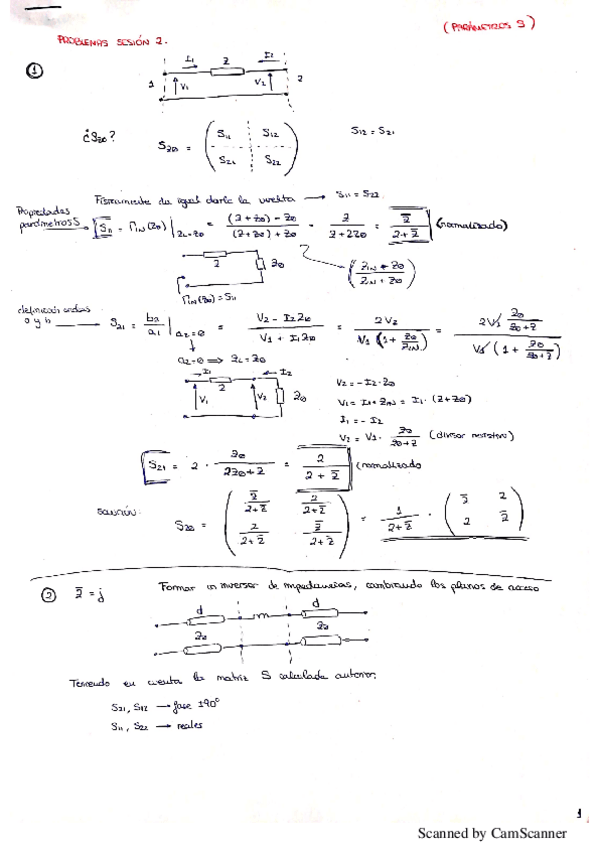 (PARÁMETROS S)
PROBLEMAS SESIÓN 2.
① I₁ Z I₂
1 V₁ V₂ 2
¿S_{Z0}? S_{Z0} = ( S₁₁ S₁₂ S₁₂ = S₂₁
S₂₁ S₂₂ )
Físicamente da igual darle la vuelta → S₁₁ = S₂₂
Propiedades
parámetros S → S₁₁ = Γ_{IN}(Z0) |_{ZL=Z0} = (Z+Z0) - Z0 / (Z+Z0) + Z0 = Z / Z+2Z0 = Z̄ / 2+Z̄ (normalizado)
Z Z0 (Z_{IN} - Z0 / Z_{IN} + Z0)
Γ_{IN}(Z0) = S₁₁
definición ondas
a y b → S₂₁ = b₂/a₁ |_{a₂=0} = V₂ - I₂Z0 / V₁ + I₁Z0 = 2V₂ / V₁(1 + Z0/Z_{IN}) = 2V₁ Z0/Z0+Z / V₁(1 + Z0/Z0+Z)
a₂=0 ⇒ ZL=Z0
I₁ Z I₂
V₁ V₂ Z0
V₂ = -I₂·Z0
V₁ = I₁·Z_{IN} = I₁·(Z+Z0)
I₁ = -I₂
V₂ = V₁· Z0/Z0+Z (divisor resistivo)
S₂₁ = 2 · Z0 / 2Z0+Z = 2 / 2+Z̄ (normalizado
Solución:
S_{Z0} = ( Z̄/2+Z̄ 2/2+Z̄
2/2+Z̄ Z̄/2+Z̄ ) = 1/2+Z̄ · ( Z̄ 2
2 Z̄ )
② Z̄ = j Formar un inversor de impedancias, cambiando los planos de acceso
d m d
Z0 Z0
Teniendo en cuenta la matriz S calculada
S₂₁, S₁₂ → fase ±90°
S₁₁, S₂₂ → reales
1
Scanned by CamScanner